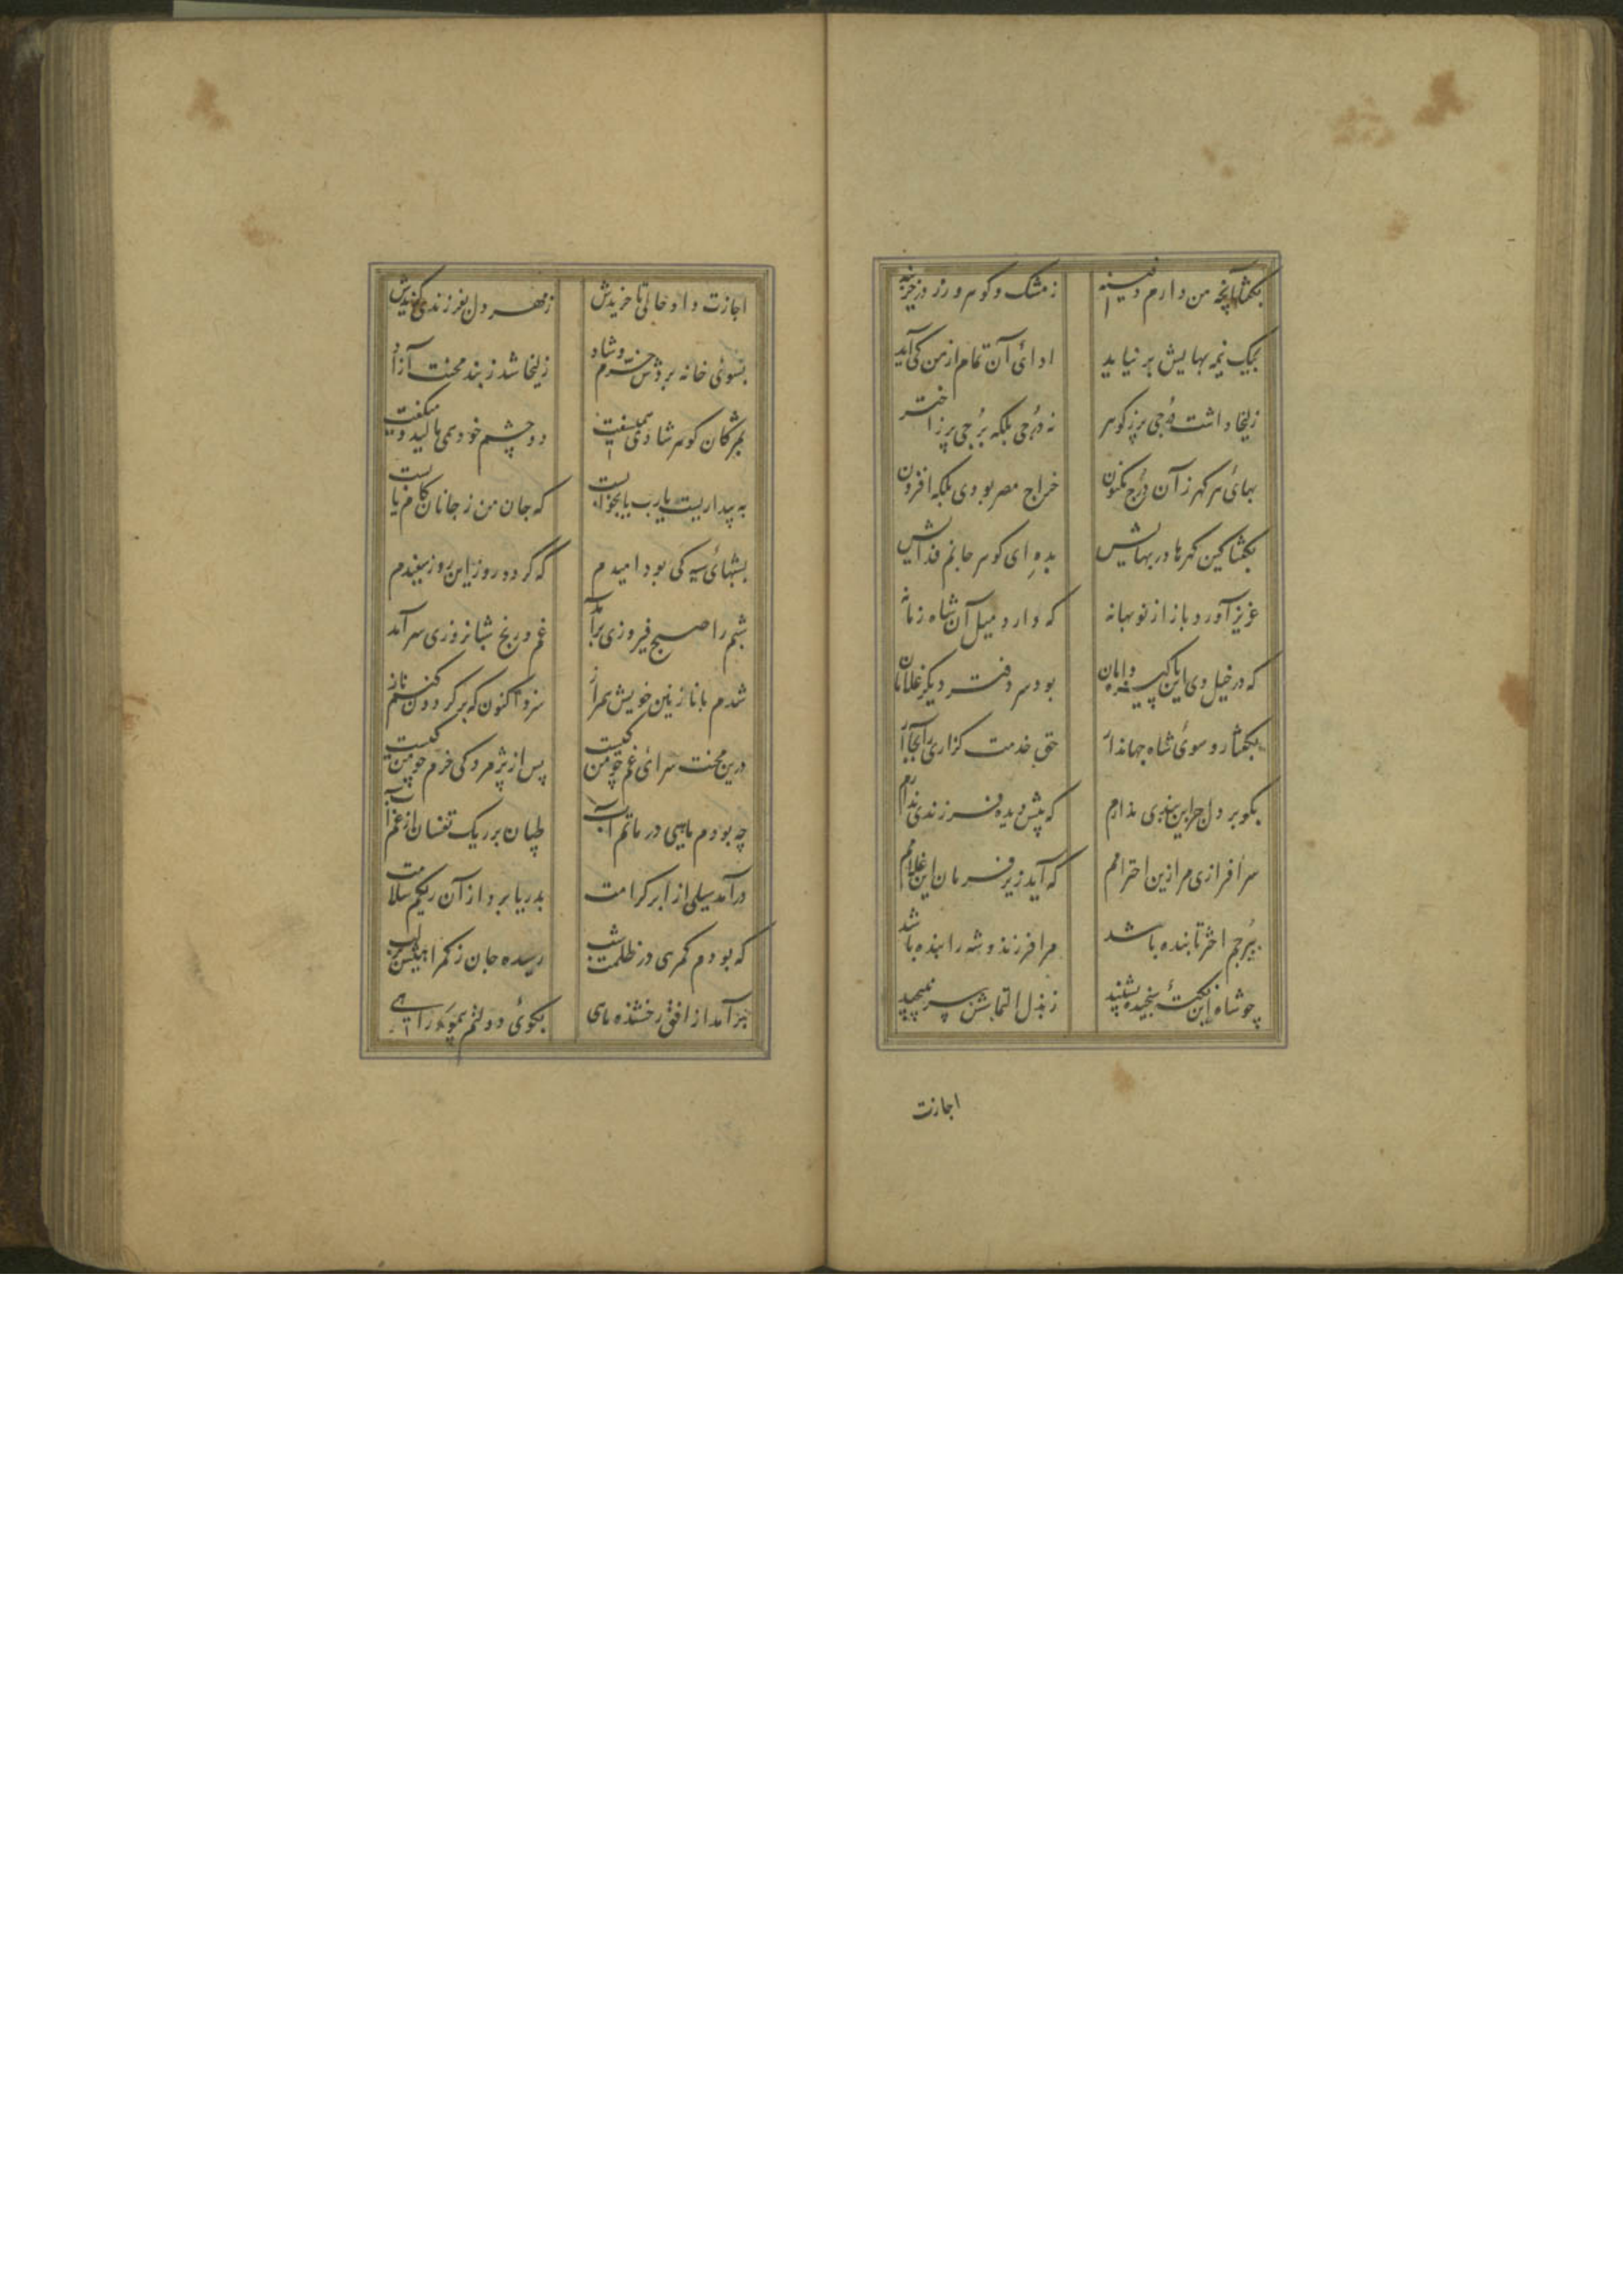 بگفتا آنچه من دارم دفینه ز مشک و گوهر و زر در خزینه
بیک نیمه بهایش بر نیاید ادائ آن تمام از من کی آید
زلیخا داشت دُرجی پر ز گوهر نه دُرجی بلکه بُرجی پر ز اختر
بهائ هر گهر زآن دُرج مکنون خراج مصر بودی بلکه افزون
بگفتا کین گهرها در بهایش بدهِ ای گوهر جانم فدایش
عزیز آورد باز از نو بهانه که دارد میل آن شاه زمانه
که در خیل وی این پاکیزه دامان بود سر دفتر دیگر غلامان
بگفتا رو سوئ شاه جهاندار حق خدمت گزاری را بجا آر
بگو بر دل جز این بندی ندارم که پیش دیده فرزندی ندارم
سرافرازی مرا زین احترامم که آید زیر فرمان این غلامم
ببُرجم اختر تابنده باشد مرا فرزند و شه را بنده باشد
چو شاه این نکتهٔ سنجیده بشنید ز بذل التماسش سر نپیچید
اجازت
اجازت داد حالی تا خریدش ز مهر دل بفرزندی گزیدش
بسوئ خانه بردش خرم و شاد زلیخا شد ز بند محنت آزاد
بمژگان گوهر شادی همیسفت دو چشم خود همی مالید و میگفت
به بیداریست یارب یا بخوابست که جان من ز جانان کام یابست
بشبهائ سیه کی بود امیدم که گردد روزی این روز سفیدم
شبم را صبح فیروزی برآمد غم و رنج شبانروزی سرآمد
شدم با نازنین خویش همراز سزد اکنون که بر گردون کنم ناز
درین محنت سرائ غم چو من کیست پس از پژمردکی خرم چو من کیست
چه بودم ماهیی در ماتم آب طپان بر ریک تفسان از غم آب
درآمد سیلی از ابر کرامت بدریا برد از آن ریکم سلامت
که بودم گمرهی در ظلمت شب رسیده جان ز گمراهیش بر لب
برآمد از افق رخشنده ماهی بکوئ دولتم بنمود راهی